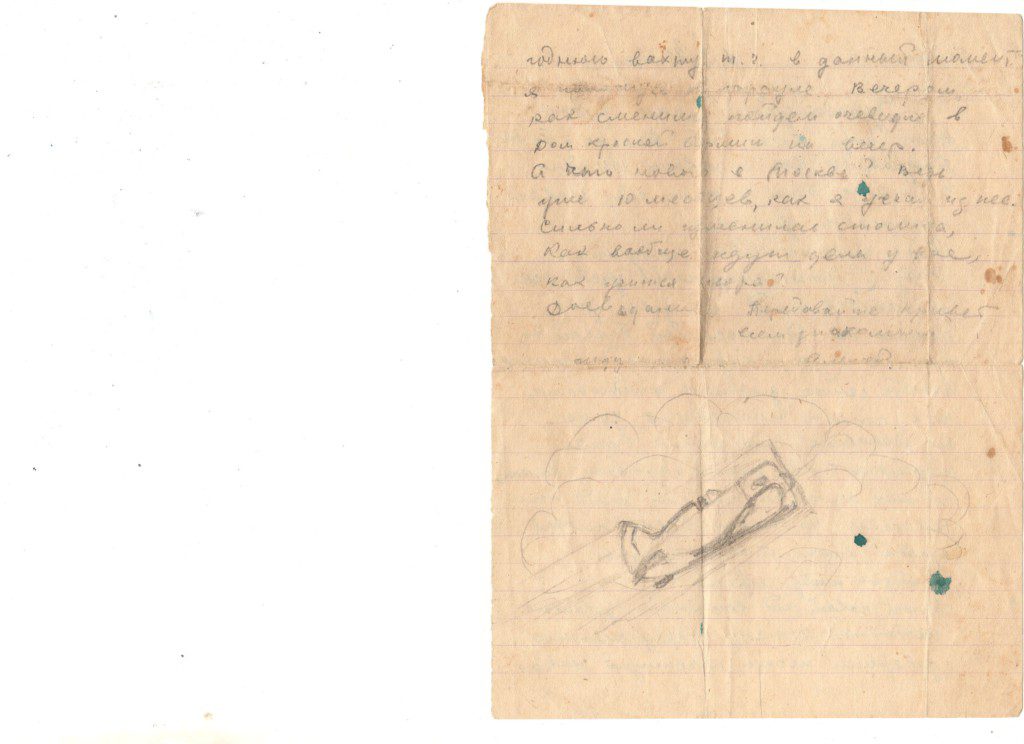 годнюю вахту т.ч. в данный момент
я карауле. Вечером,
как сменим пойдем очевидно в
дом красной армии на вечер.
А что нового в Москве? Ведь
уже 10 месяцев, как я уехал из нее.
Сильно ли изменилась столица,
Как вообще идут дела у вас,
как учится
Досвидания Передавайте привет
всем знакомым
жду